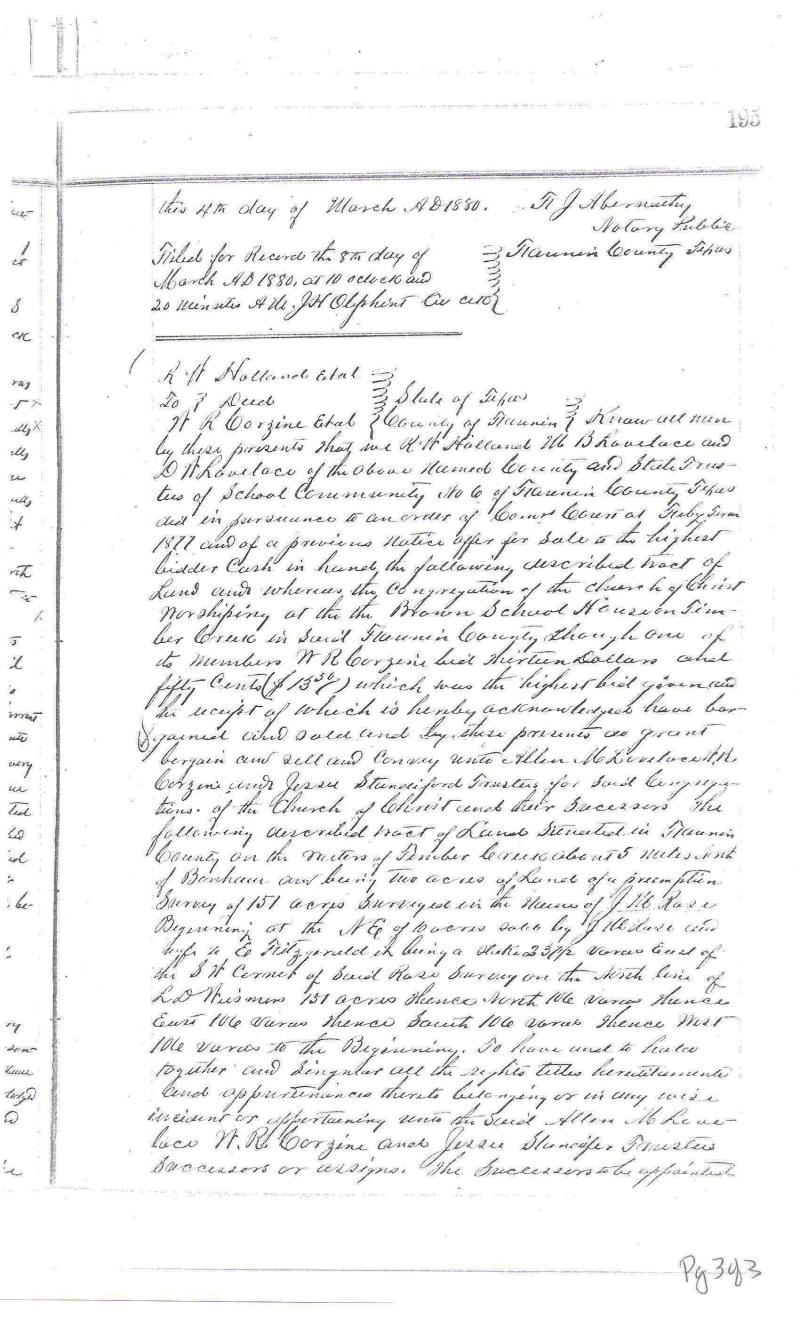 195
this 4th day of March AD 1880. H J Abernathy
Notary Public
Filed for Record the 8th day of } Fannin County Texas
March AD 1880, at 10 oclock and
20 minutes A M. J H Oliphint Co Clk
R W Holland Etal
To } Deed } State of Texas
W R Corzine Etal } County of Fannin } Know all men
by these presents that we R W Holland M B Lovelace and
D W Lovelace of the above Named County and State Trus-
tees of School Community No 6 of Fannin County Texas
did in pursuance to an order of Comr Court at Feby Term
1877 and of a previous Notice offer for Sale to the highest
bidder Cash in hand, the following described tract of
Land and whereas the Congregation of the Church of Christ
Worshiping at the the Brown School House on Tim-
ber Creek in Said Fannin County through one of
its Members W R Corzine bid thirteen Dollars and
fifty Cents ($13 50/) which was the highest bid given and
the receipt of which is hereby acknowledged have bar
gained and sold and by these presents do grant
bargain and sell and Convey unto Allen M Lovelace W.R.
Corzine and Jessee Standiford Trustees for Said Congrega-
tions. of the Church of Christ and their Sucessors The
following described tract of Land Situated in Fannin
County on the waters of Timber Creek about 5 miles North
of Bonham and being two acres of Land of a preemption
Survey of 151 acres Surveyed in the Name of J M Rose
Beginning at the NE of 10 acres sold by J M Rose and
wife to E Fitzgerald it being a stake varas East of
the S W Corner of Said Rose Survey on the North line of
L D 151 acres thence North 106 varas thence
East 106 varas thence South 106 varas thence West
106 varas to the Beginning. To have and to hold
together and Singular all the rights titles hereditaments
and appurtinances thereto belonging or in any wise
incident or appertaining unto the Said Allen M Love-
lace W. R. Corzine and Jessee Trustees
Successors or assigns. The Successors to be appointed
Pg 3 of 3